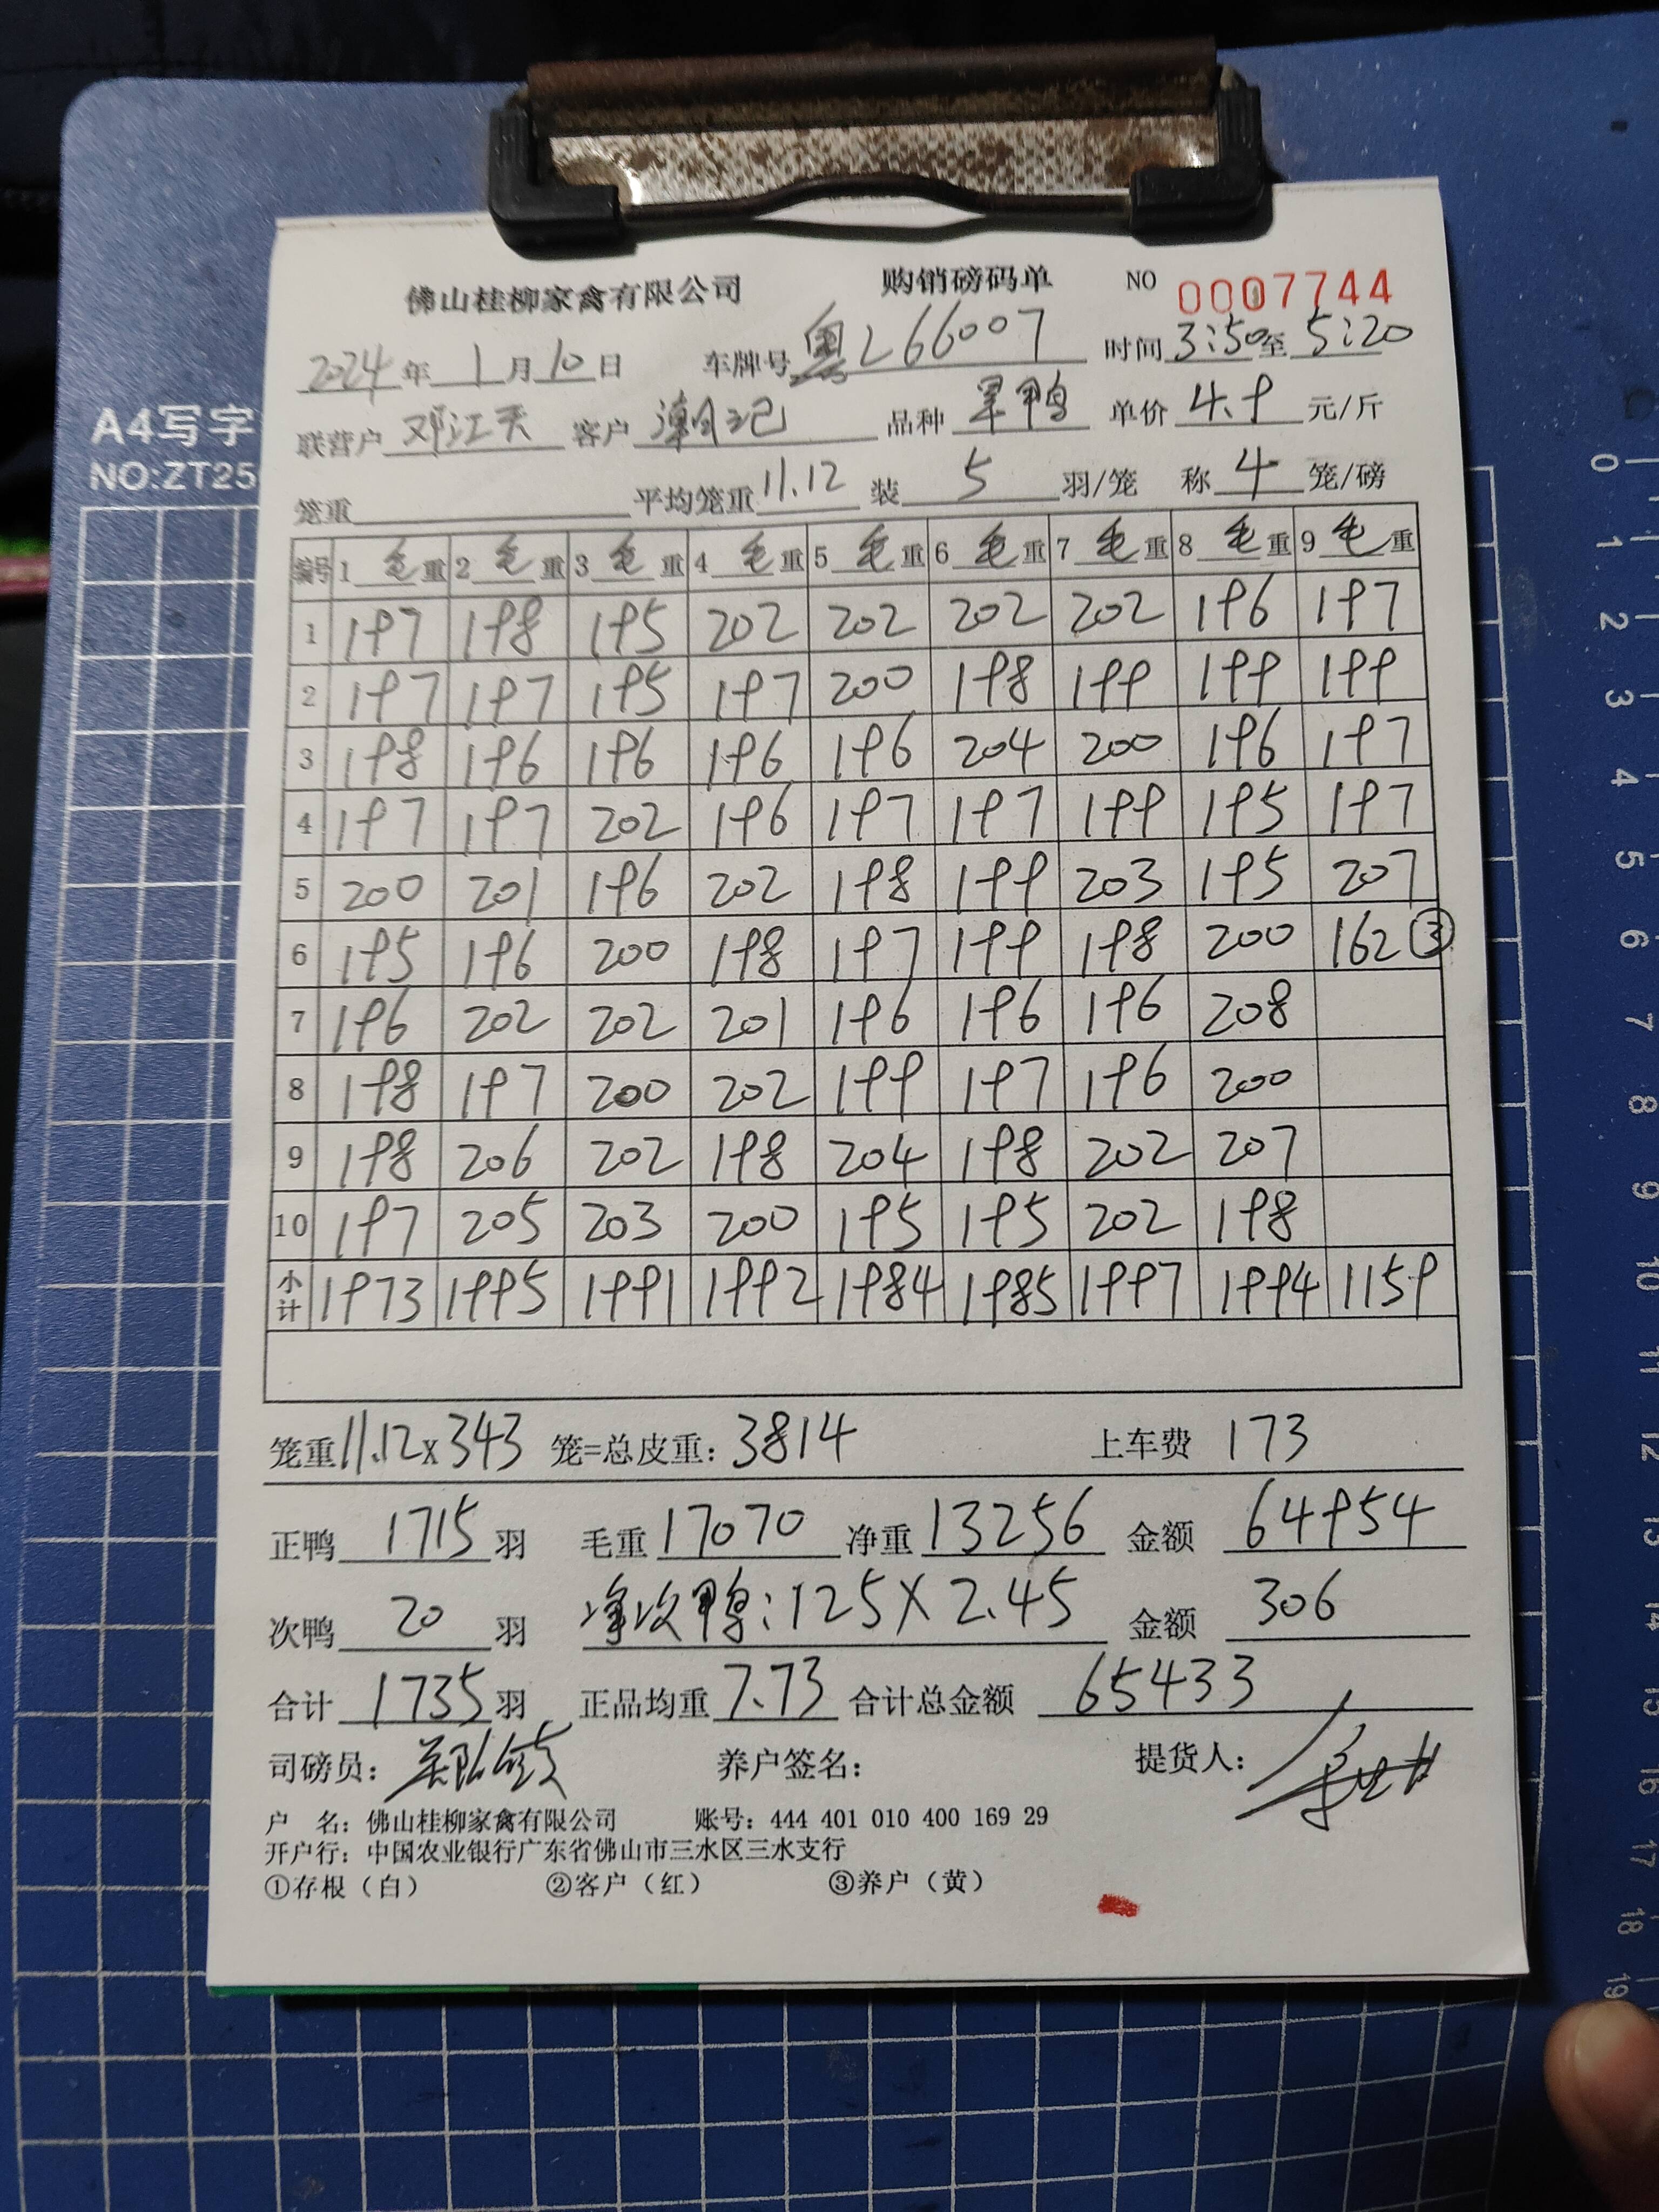 佛山桂柳家禽有限公司 购销磅码单 NO 0007744
2024年1月10日 车牌号粤L66007 时间3:50至5:20
A4写字
NO:ZT25
联营户邓江天 客户潮记 品种旱鸭 单价4.9元/斤
笼重 平均笼重11.12 装5羽/笼 称4笼/磅
编号 1毛重 2毛重 3毛重 4毛重 5毛重 6毛重 7毛重 8毛重 9毛重
1 197 198 195 202 202 202 202 196 197
2 197 197 195 197 200 198 199 199 199
3 198 196 196 196 196 204 200 196 197
4 197 197 202 196 197 197 199 195 197
5 200 201 196 202 198 199 203 195 207
6 195 196 200 198 197 199 198 200 162 ③
7 196 202 202 201 196 196 196 208
8 198 197 200 202 199 197 196 200
9 198 206 202 198 204 198 202 207
10 197 205 203 200 195 195 202 198
小计 1973 1995 1991 1992 1984 1985 1997 1994 1159
笼重11.12x343 笼=总皮重：3814 上车费 173
正鸭1715羽 毛重17070 净重13256 金额64954
次鸭20羽 净次鸭：125X2.45 金额306
合计1735羽 正品均重7.73 合计总金额65433
司磅员： 养户签名： 提货人：
户 名：佛山桂柳家禽有限公司 账号：444 401 010 400 169 29
开户行：中国农业银行广东省佛山市三水区三水支行
①存根（白） ②客户（红） ③养户（黄）
0
1
2
3
4
5
6
7
8
9
10
11
12
13
14
15
16
17
18
19